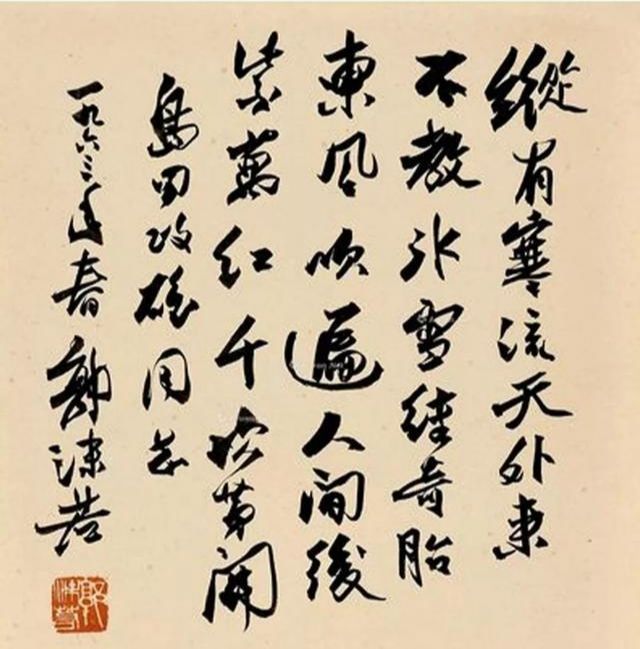 縱有寒流天外來
不教冰雪結奇胎
東風吹遍人間後
紫萬紅千次第開
島田政雄同志
一九六三年春 郭沫若
郭沫若